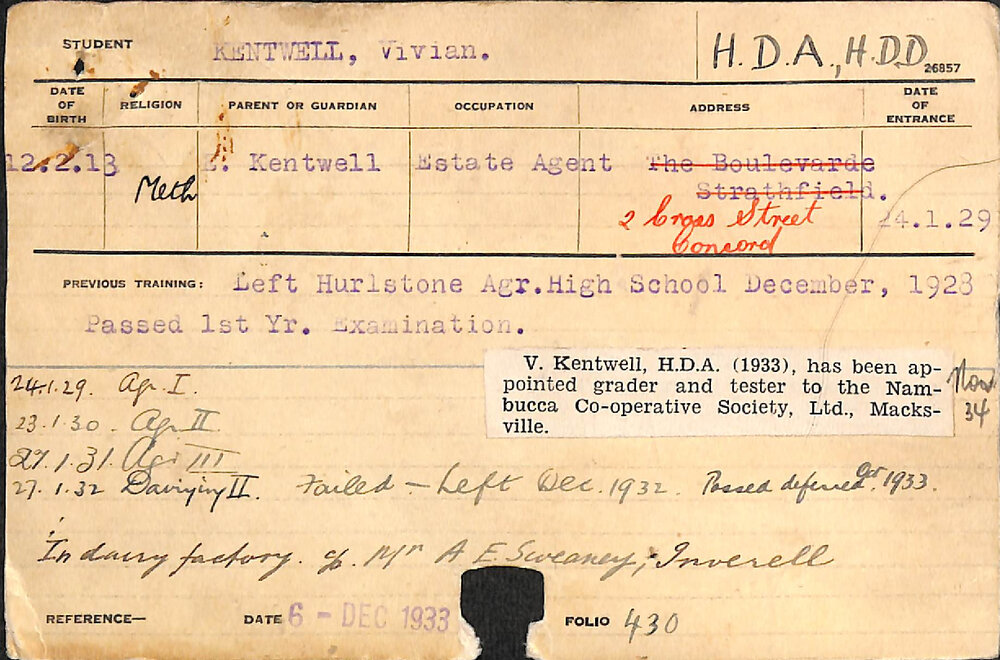 STUDENT KENTWELL, Vivian. H.D.A., H.D.D 26857
DATE OF BIRTH RELIGION PARENT OR GUARDIAN OCCUPATION ADDRESS DATE OF ENTRANCE
12.2.13 Meth E. Kentwell Estate Agent The Boulevarde
Strathfield.
2 Cross Street
Concord
24.1.29
PREVIOUS TRAINING: Left Hurlstone Agr.High School December, 1928
Passed 1st Yr. Examination.
V. Kentwell, H.D.A. (1933), has been ap-
pointed grader and tester to the Nam-
bucca Co-operative Society, Ltd., Macks-
ville.
Nov
34
24.1.29. Agr I.
23.1.30. Agr II
27.1.31. Agr III
27.1.32 Dairying II. Failed - Left Dec. 1932. Passed deferred 1933.
In dairy factory. Mr A E Sweaney, Inverell
REFERENCE— DATE 6 - DEC 1933 FOLIO 430